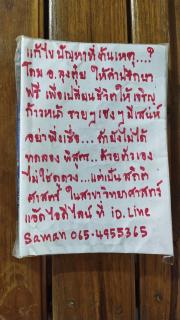 แก้ไขปัญหาที่ต้นเหตุ....?
โดย อ.ลุงตุ้ย ให้คำปรึกษา
ฟรี เพื่อเปลี่ยนชีวิตให้เจริญ
ก้าวหน้า รวยๆเฮงๆ มีเสน่ห์
อย่าพึ่งเชื่อ... ถ้ายังไม่ได้
ทดลอง พิสูจร..ด้วยตัวเอง
ไม่ใช่ดูดวง...แต่เป็นสถิติ
ศาสตร์ ในสาขาวิทยาศาสตร์
แอ๊ดไอดีไลน์ ที่ iD.Line
Saman 065.4955365